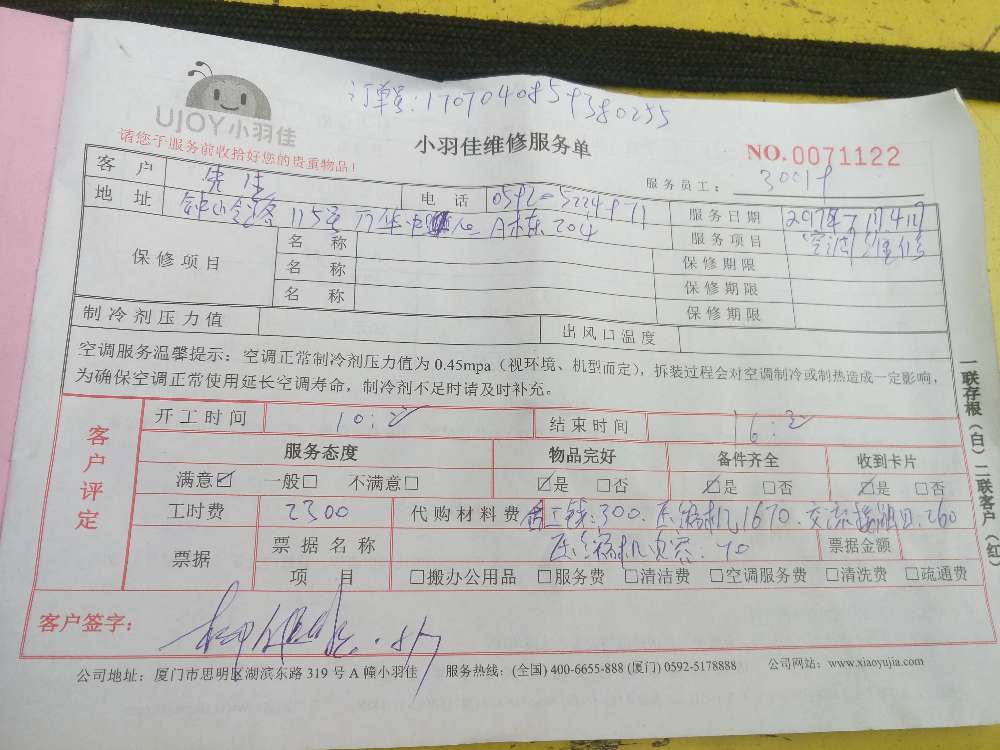 UJOY小羽佳
请您于服务前收拾好您的贵重物品!
小羽佳维修服务单
NO.0071122
服务员工:
客户 先生 电话 服务日期
地址 115号 A栋 204 服务项目 空调维修
保修项目 名称 保修期限
名称 保修期限
名称 保修期限
制冷剂压力值 出风口温度
空调服务温馨提示:空调正常制冷剂压力值为 0.45mpa(视环境、机型而定),拆装过程会对空调制冷或制热造成一定影响,
为确保空调正常使用延长空调寿命,制冷剂不足时请及时补充。
客户评定
开工时间 结束时间
服务态度 物品完好 备件齐全 收到卡片
满意☑ 一般□ 不满意□ ☑是 □否 ☑是 □否 ☑是 □否
工时费 2300 代购材料费 工钱:300. 压缩机1670. 交流接触 260
压缩机电容:70
票据 票据名称 票据金额
项目 □搬办公用品 □服务费 □清洁费 □空调服务费 □清洗费 □疏通费
客户签字:
一联存根(白)二联客户(红)
公司地址:厦门市思明区湖滨东路 319 号 A 幢小羽佳 服务热线:(全国) 400-6655-888 (厦门) 0592-5178888 公司网站:www.xiaoyujia.com